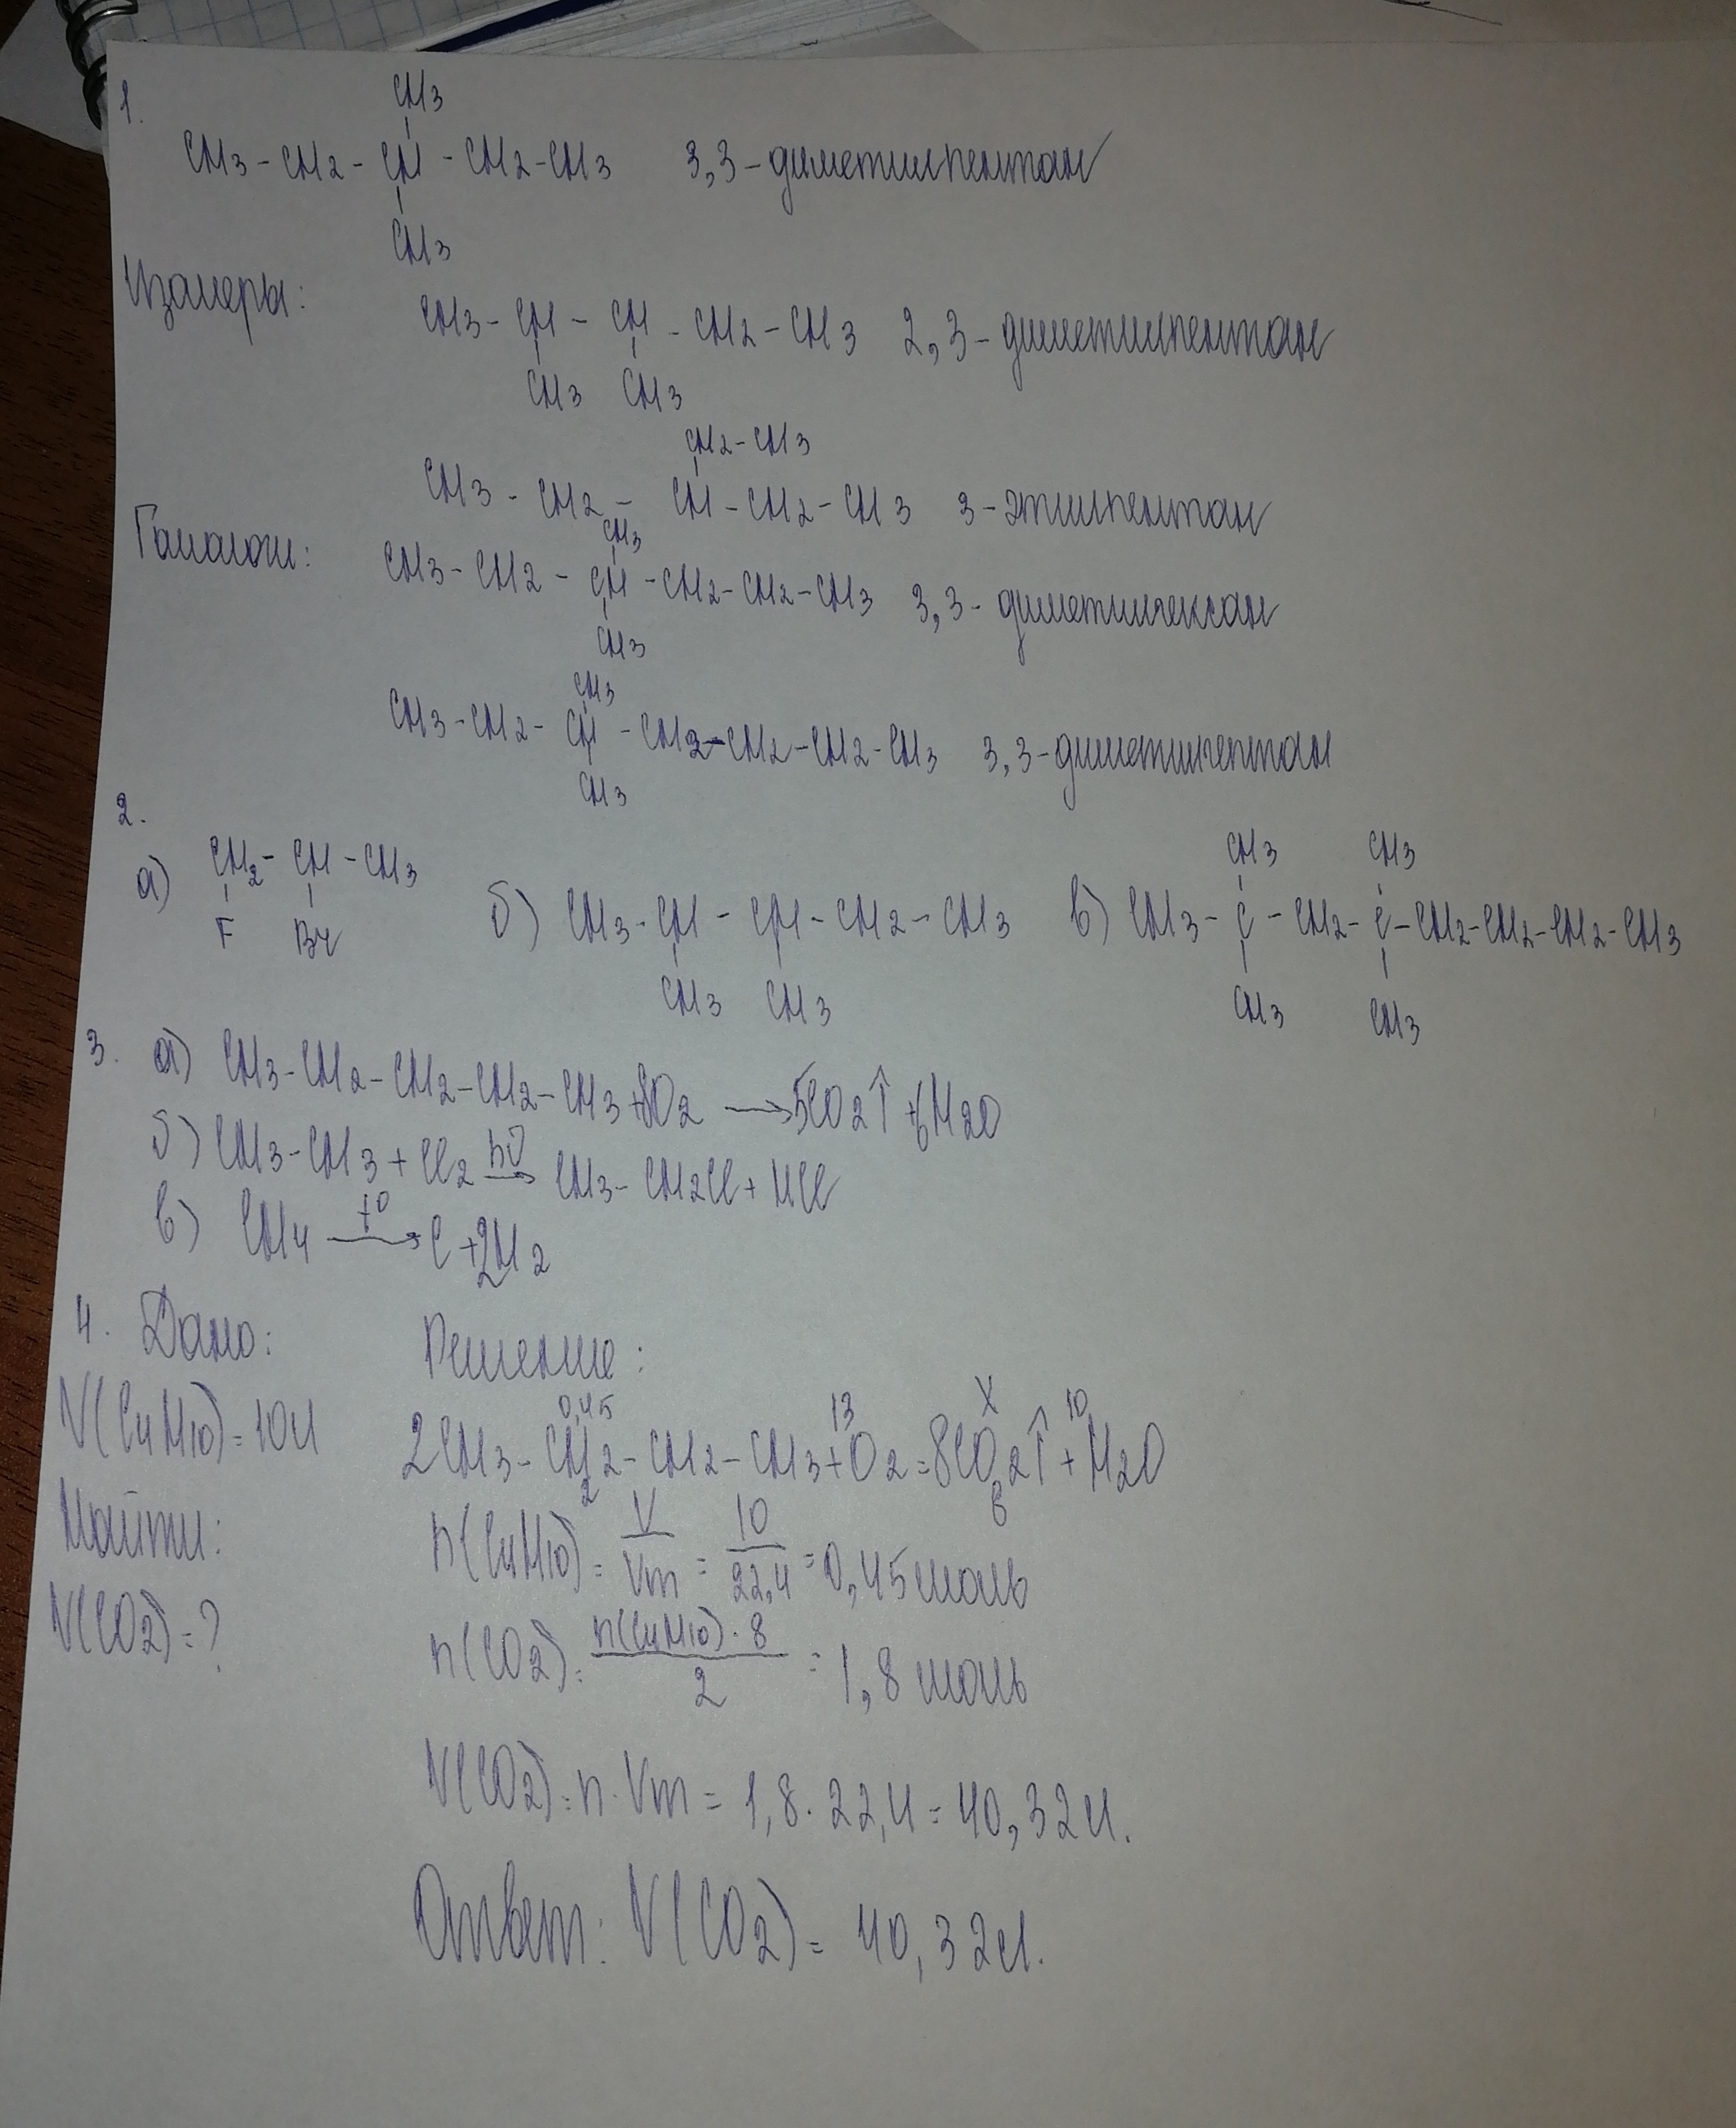 1.
CH3
CH3 - CH2 - CH - CH2 - CH3 3,3 - диметилпентан
CH3
Изомеры:
CH3 - CH - CH - CH2 - CH3 2,3 - диметилпентан
CH3 CH3
CH2 - CH3
CH3 - CH2 - CH - CH2 - CH3 3 - этилпентан
Гомологи:
CH3
CH3 - CH2 - CH - CH2 - CH2 - CH3 3,3 - диметилгексан
CH3
CH3
CH3 - CH2 - CH - CH2 - CH2 - CH2 - CH3 3,3 - диметилгептан
CH3
2.
а) CH2 - CH - CH3
F Br
б) CH3 - CH - CH - CH2 - CH3
CH3 CH3
CH3 CH3
в) CH3 - C - CH2 - C - CH2 - CH2 - CH2 - CH3
CH3 CH3
3. а) CH3 - CH2 - CH2 - CH2 - CH3 + 8O2 → 5CO2↑ + 6H2O
б) CH3 - CH3 + Cl2 hν→ CH3 - CH2Cl + HCl
в) CH4 t°→ C + 2H2
4. Дано: Решение:
0,45 13 X 10
V(C4H10) = 10л 2CH3 - CH2 - CH2 - CH3 + O2 = 8CO2↑ + H2O
2 8
Найти: n(C4H10) = V/Vm = 10/22,4 = 0,45 моль
V(CO2) = ? n(CO2) = n(C4H10) · 8/2 = 1,8 моль
V(CO2) = n · Vm = 1,8 · 22,4 = 40,32 л.
Ответ: V(CO2) = 40,32 л.